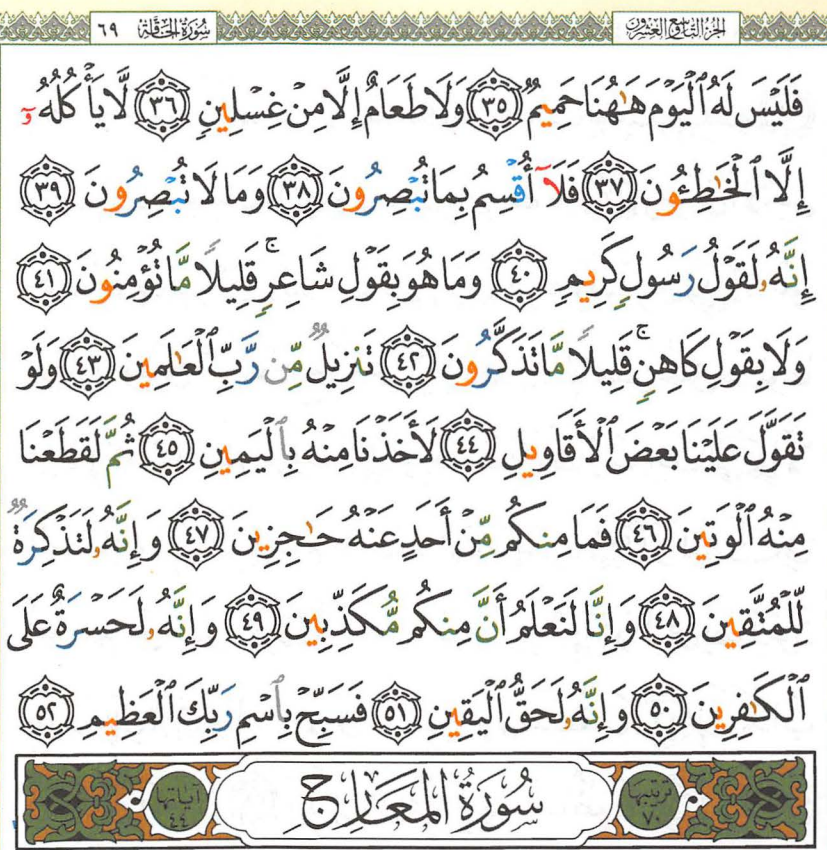 الجزء التاسع والعشرون سورة الحاقة ٦٩
فَلَيْسَ لَهُ ٱلْيَوْمَ هَـٰهُنَا حَمِيمٌ ٣٥ وَلَا طَعَامٌ إِلَّا مِنْ غِسْلِينٍ ٣٦ لَّا يَأْكُلُهُۥٓ
إِلَّا ٱلْخَـٰطِـُٔونَ ٣٧ فَلَآ أُقْسِمُ بِمَا تُبْصِرُونَ ٣٨ وَمَا لَا تُبْصِرُونَ ٣٩
إِنَّهُۥ لَقَوْلُ رَسُولٍ كَرِيمٍ ٤٠ وَمَا هُوَ بِقَوْلِ شَاعِرٍۚ قَلِيلًا مَّا تُؤْمِنُونَ ٤١
وَلَا بِقَوْلِ كَاهِنٍۚ قَلِيلًا مَّا تَذَكَّرُونَ ٤٢ تَنزِيلٌ مِّن رَّبِّ ٱلْعَـٰلَمِينَ ٤٣ وَلَوْ
تَقَوَّلَ عَلَيْنَا بَعْضَ ٱلْأَقَاوِيلِ ٤٤ لَأَخَذْنَا مِنْهُ بِٱلْيَمِينِ ٤٥ ثُمَّ لَقَطَعْنَا
مِنْهُ ٱلْوَتِينَ ٤٦ فَمَا مِنكُم مِّنْ أَحَدٍ عَنْهُ حَـٰجِزِينَ ٤٧ وَإِنَّهُۥ لَتَذْكِرَةٌ
لِّلْمُتَّقِينَ ٤٨ وَإِنَّا لَنَعْلَمُ أَنَّ مِنكُم مُّكَذِّبِينَ ٤٩ وَإِنَّهُۥ لَحَسْرَةٌ عَلَى
ٱلْكَـٰفِرِينَ ٥٠ وَإِنَّهُۥ لَحَقُّ ٱلْيَقِينِ ٥١ فَسَبِّحْ بِٱسْمِ رَبِّكَ ٱلْعَظِيمِ ٥٢
ترتيبها ٧٠ سُورَةُ الْمَعَارِجِ آياتها ٤٤